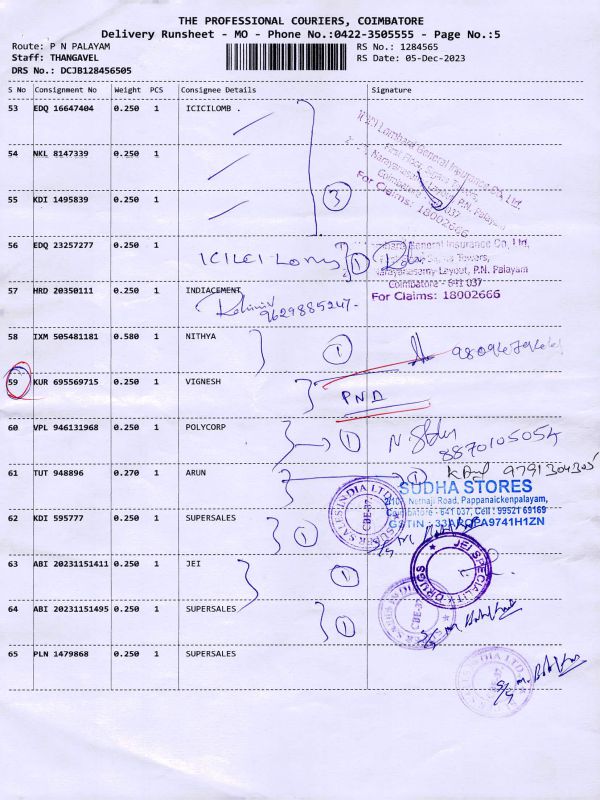 THE PROFESSIONAL COURIERS, COIMBATORE
Delivery Runsheet - MO - Phone No.:0422-3505555 - Page No.:5
Route: P N PALAYAM
Staff: THANGAVEL
DRS No.: DCJB128456505
RS No.: 1284565
RS Date: 05-Dec-2023
S No Consignment No Weight PCS Consignee Details Signature
53 EDQ 16647404 0.250 1 ICICILOMB .
ICICI Lombard General Insurance Co, Ltd.
First Floor,
Narayanasamy Layout, P.N. Palayam
Coimbatore - 641 037
For Claims: 18002666
54 NKL 8147339 0.250 1
55 KDI 1495839 0.250 1
3
56 EDQ 23257277 0.250 1
ICICI Lom 1
Lombard General Insurance Co, Ltd,
Towers,
Narayanasamy Leyout, P.N. Palayam
Coimbatore - 641 037
For Claims: 18002666
57 HRD 20350111 0.250 1 INDIACEMENT
9629885247-
58 IXM 505481181 0.580 1 NITHYA
1
59 KUR 695569715 0.250 1 VIGNESH
PND
60 VPL 946131968 0.250 1 POLYCORP
1
8870105054
61 TUT 948896 0.270 1 ARUN
1 9791304305
SUDHA STORES
Nethaji Road, Pappanaickenpalayam,
Coimbatore - 641 037, Cell : 99521 69169
GSTIN : 33AROPA9741H1ZN
62 KDI 595777 0.250 1 SUPERSALES
1
SUPER SALES INDIA LTD.
CBE-37
63 ABI 20231151411 0.250 1 JEI
1
JEI SPECIALITY DRUGS
64 ABI 20231151495 0.250 1 SUPERSALES
1
CBE-37
65 PLN 1479868 0.250 1 SUPERSALES